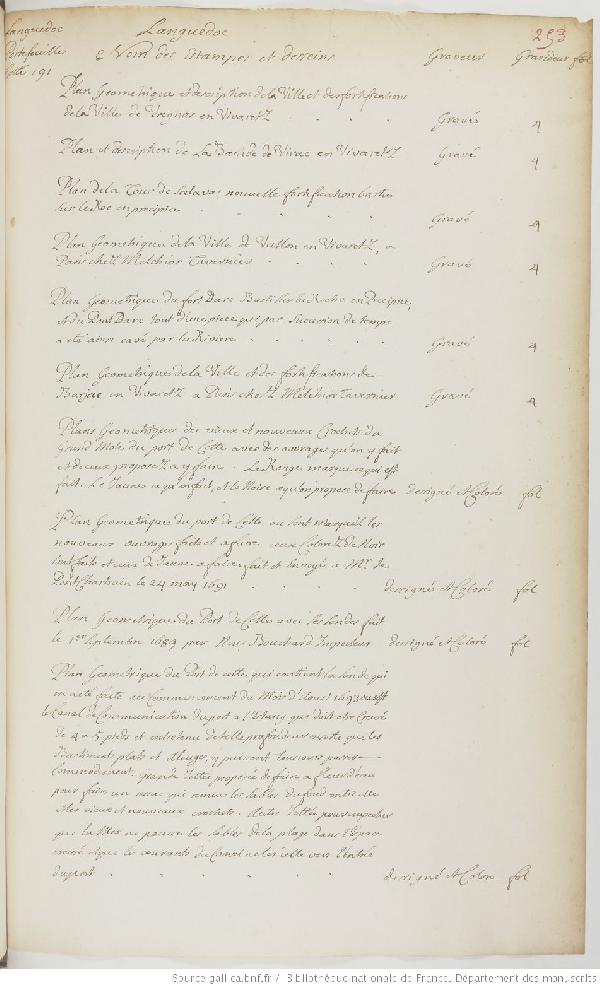 Languedoc
Languedoc
253
Portefeuilles
Noms des Estampes et desseins
Graveurs
Grandeur fol
191
Plan Geometrique et description de la Ville et des fortifications
de la Ville de en Vivaretz
Gravé
4
Plan et description de La de en Vivaretz
Gravé
4
Plan de la Tour de Salavas nouvelle fortification bastie
sur le Roc en precipice
Gravé
4
Plan Geometrique de la Ville de Vallon en Vivaretz, a
Paris chez Melchior Tavernier
Gravé
4
Plan Geometrique du fort Darc Basti sur le Roche en Precipice,
et du Pont Darc tout d'une piece qui par succession de temps
a eté ainsi cavé par la Riviere
Gravé
4
Plan Geometrique de la Ville et des fortifications de
Barjac en Vivaretz a Paris chez Melchior Tavernier
Gravé
4
Plans Geometriques des vieux et nouveaux Crochets du
Grand Mole du port de Cette avec des ouvrages qu'on y fait
et de ceux proposez a y faire. Le Rouge marque ce qui est
fait. Le Jaune ce qu'on fait, et le Noire ce qu'on propose de faire
dessigné et Coloré
fol
Plan Geometrique du port de Cette ou sont marquez les
nouveaux ouvrages faits et a faire, ceux Colorez de Noir
sont faits et ceux de Jaune a faire, fait et envoyé a Mr. de
Pontchartrain le 24 may 1691
dessigné et Coloré
fol
Plan Geometrique du Port de Cette avec les sondes fait
le 1er Septembre 1689 par Bouchard Inspecteur
dessigné et Coloré
fol
Plan Geometrique du Port de Cette, qui contient la sonde qui
en a eté faite au Commencement du Mois d'Aoust 1693
le Canal de Communication du port a l'Etang qui doit etre Creusé
de 4 a 5 pieds et entretenu de telle profondeur en sorte que les
Bastiments plats et Alleges, y puissent tousiours passer
Commodement, grande Jettée proposée de faire a fleur d'eau
pour faire un ressac qui remue les sables du fond entre elle
et les vieux et nouveaux crochets. Autre Jettée pour empescher
que la Mer ne pousse les sables de la plage dans l'Espace
creusé et que les courants du Canal ne les jette vers l'entrée
du port
dessigné et Coloré
fol
Source gallica.bnf.fr / Bibliothèque nationale de France. Département des manuscrits